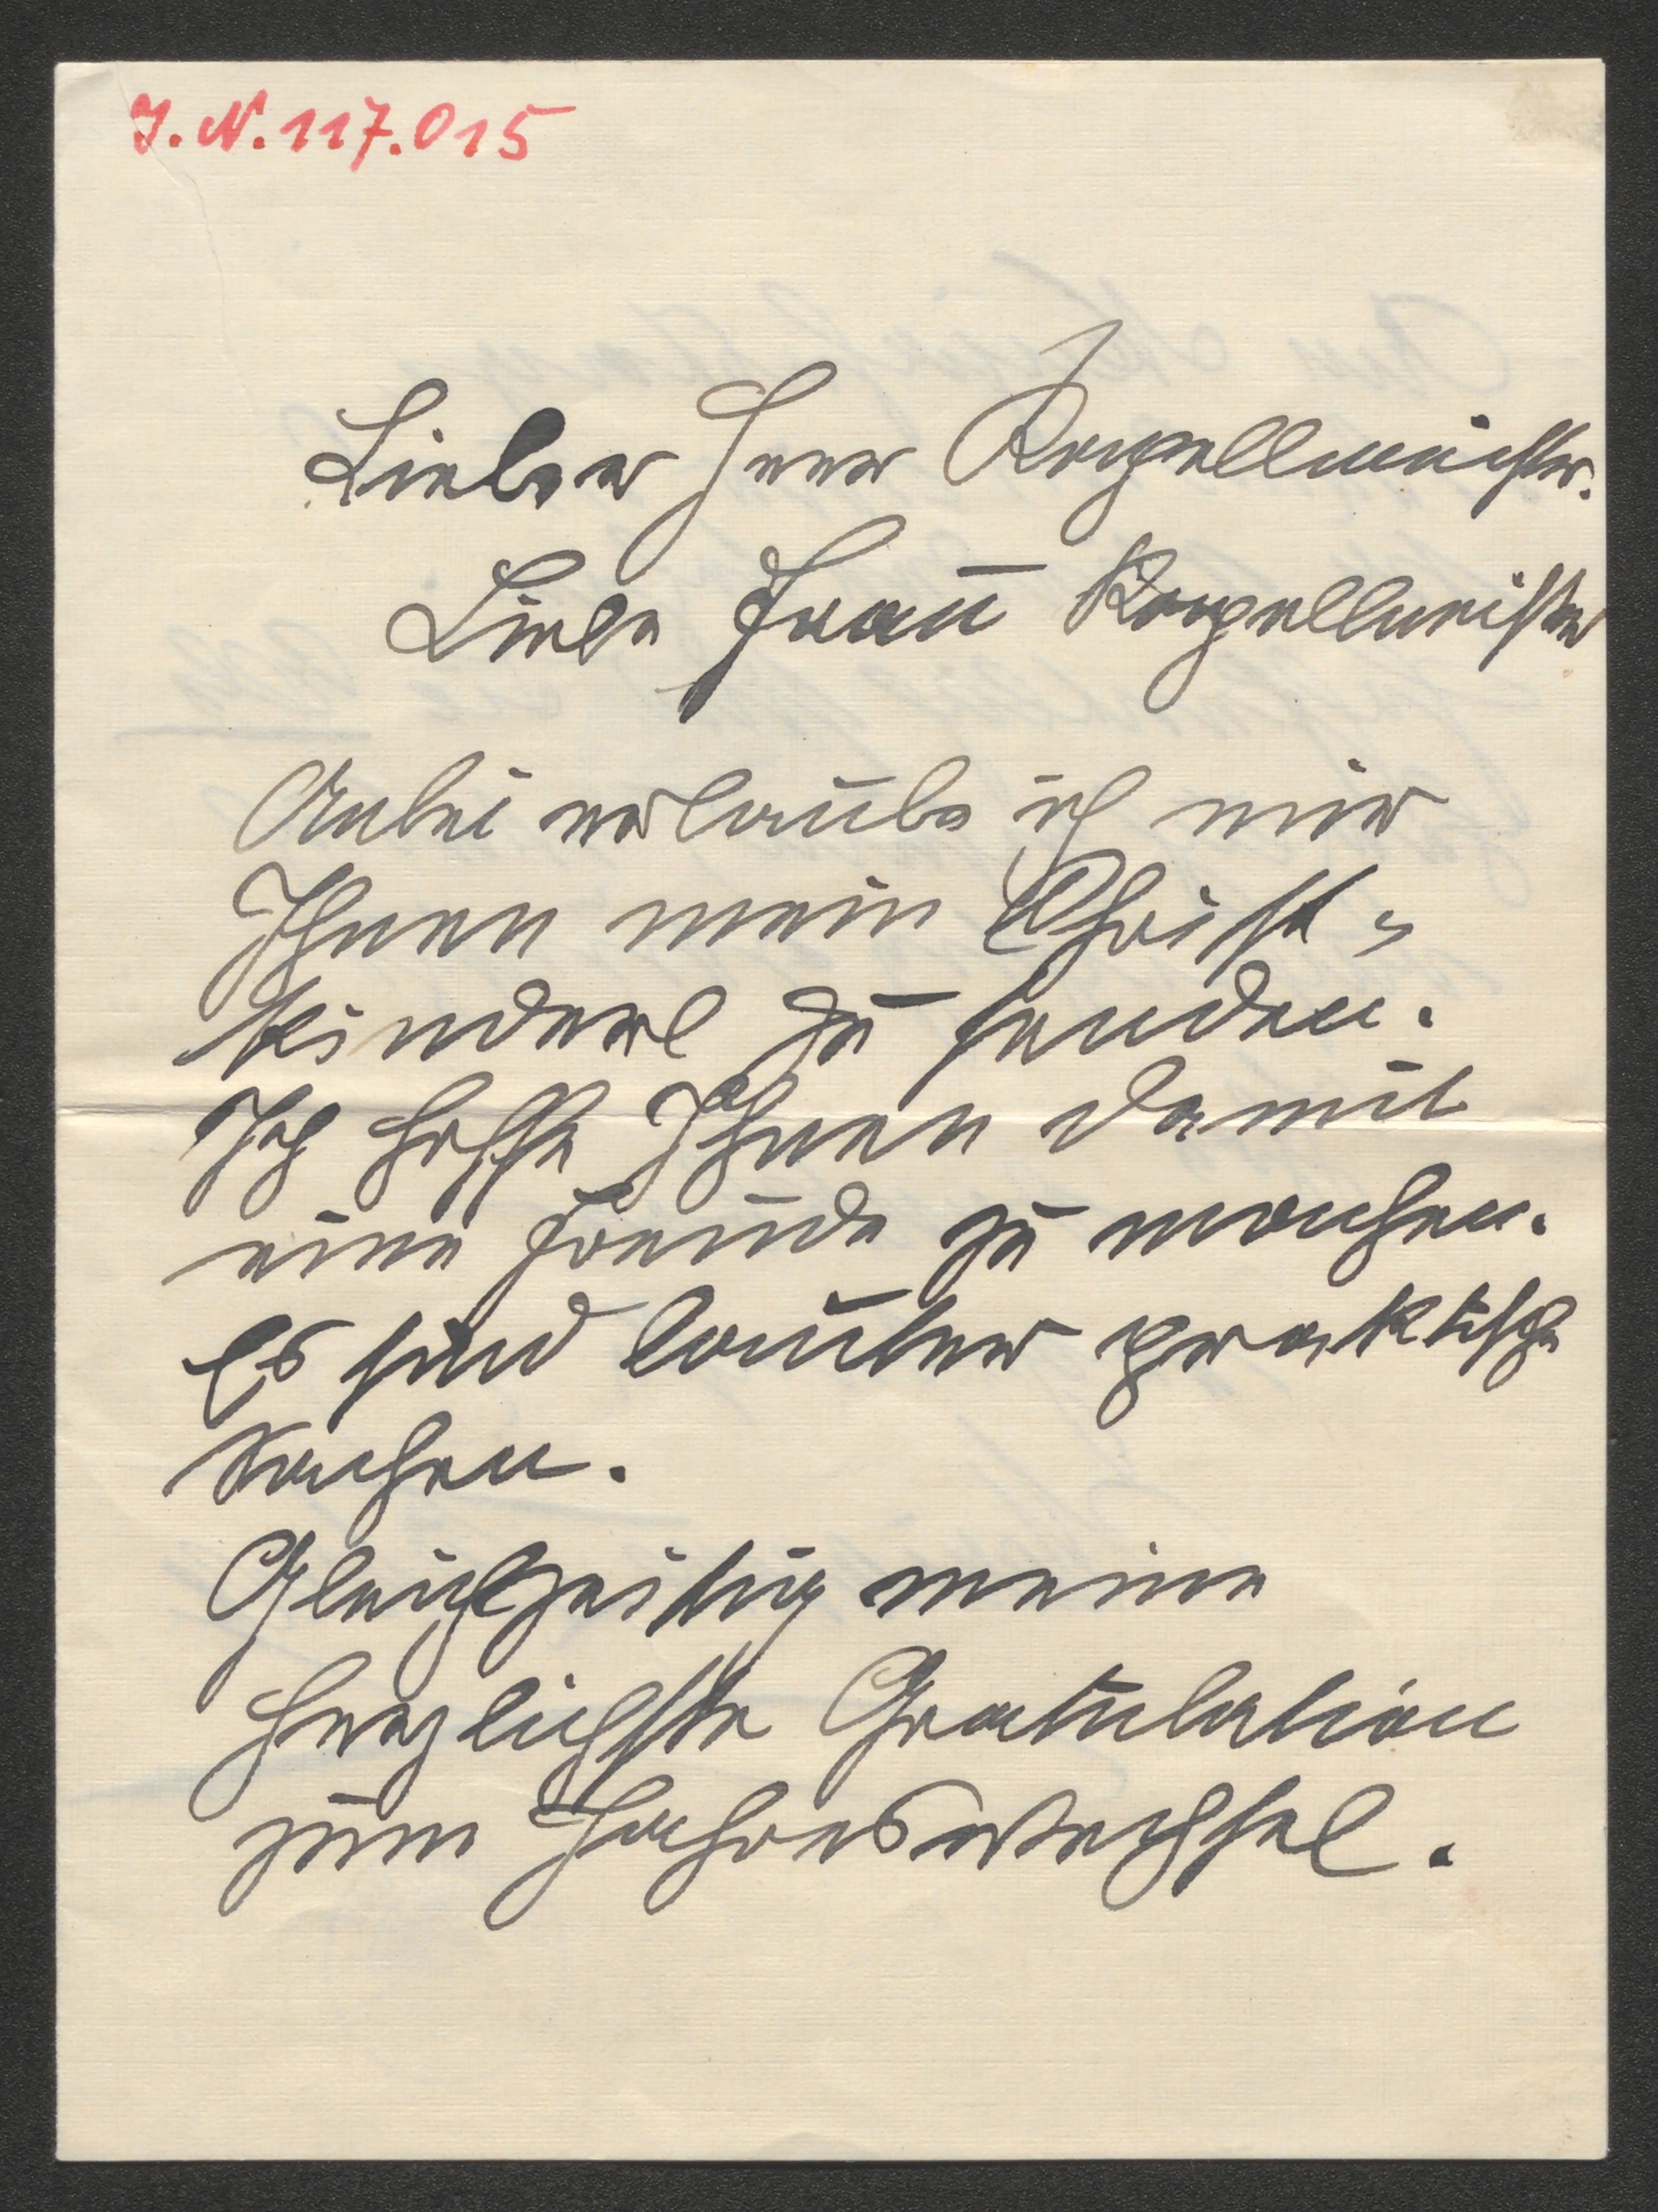 I.N.117.015
Lieber Herr Kapellmeister.
Liebe Frau Kapellmeister
Anbei erlaube ich mir
Ihnen mein Christ-
kinderl zu senden.
Ich hoffe Ihnen damit
eine Freude zu machen.
Es sind lauter praktische
Sachen.
Gleichzeitig meine
herzlichste Gratulation
zum Jahreswechsel.